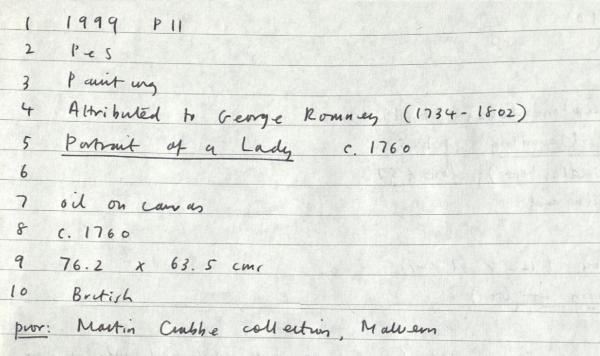 1 1999 P11
2 Pes
3 Painting
4 Attributed to George Romney (1734-1802)
5 Portrait of a Lady c. 1760
6
7 oil on canvas
8 c. 1760
9 76.2 x 63.5 cms
10 British
prov: Martin Crabbe collection, Malvern